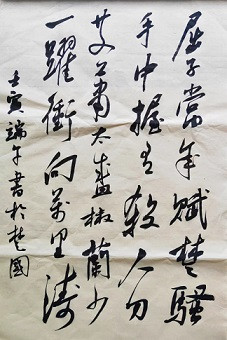 屈子當年賦楚騷
手中握有殺人刀
艾蕭太盛椒蘭少
一躍衝向萬里濤
壬寅端午書於楚國